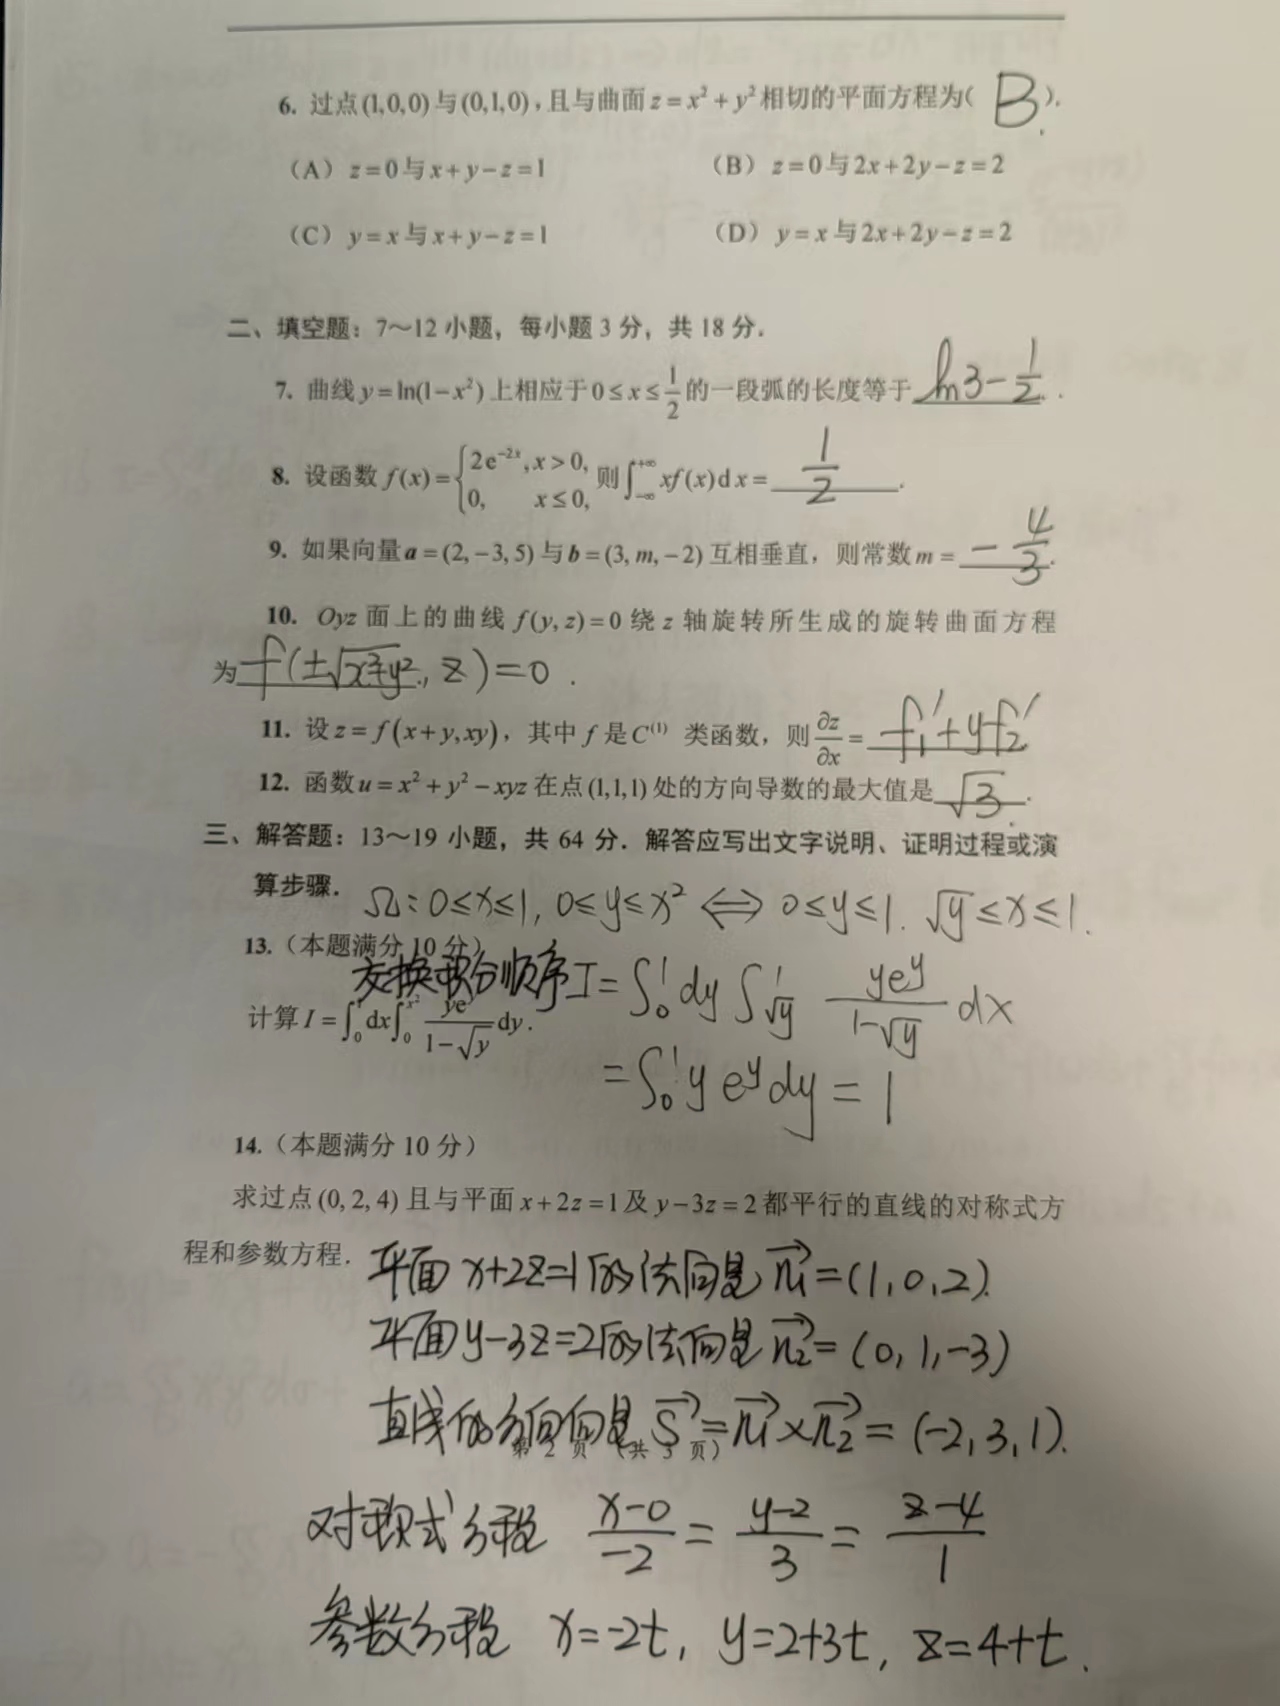 6. 过点(1,0,0)与(0,1,0),且与曲面z=x²+y²相切的平面方程为( B ).
(A) z=0与x+y−z=1 (B) z=0与2x+2y−z=2
(C) y=x与x+y−z=1 (D) y=x与2x+2y−z=2
二、填空题:7~12小题,每小题3分,共18分.
7. 曲线y=ln(1−x²)上相应于0≤x≤1/2的一段弧的长度等于 ln3−1/2 .
8. 设函数f(x)={2e^{−2x},x>0, 0, x≤0, 则∫_{−∞}^{+∞}xf(x)dx= 1/2 .
9. 如果向量a=(2,−3,5)与b=(3,m,−2)互相垂直,则常数m= −4/3 .
10. Oyz面上的曲线f(y,z)=0绕z轴旋转所生成的旋转曲面方程
为 f(±√(x²+y²), z)=0 .
11. 设z=f(x+y,xy),其中f是C⁽¹⁾类函数,则∂z/∂x= f₁′+yf₂′
12. 函数u=x²+y²−xyz在点(1,1,1)处的方向导数的最大值是 √3 .
三、解答题:13~19小题,共64分.解答应写出文字说明、证明过程或演
算步骤.
Ω: 0≤x≤1, 0≤y≤x² ⟺ 0≤y≤1. √y≤x≤1.
13.(本题满分10分)
交换积分顺序 I=∫₀¹dy∫_{√y}^1 ye^y/(1−√y) dx
计算I=∫₀¹dx∫₀^{x²} ye^y/(1−√y) dy.
=∫₀¹ye^y dy=1
14.(本题满分10分)
求过点(0,2,4)且与平面x+2z=1及y−3z=2都平行的直线的对称式方
程和参数方程.
平面x+2z=1的法向量n₁⃗=(1,0,2).
平面y−3z=2的法向量n₂⃗=(0,1,−3)
直线的方向向量S⃗=n₁⃗×n₂⃗=(−2,3,1).
第 2 页 (共 3 页)
对称式方程 (x−0)/−2=(y−2)/3=(z−4)/1
参数方程 x=−2t, y=2+3t, z=4+t.